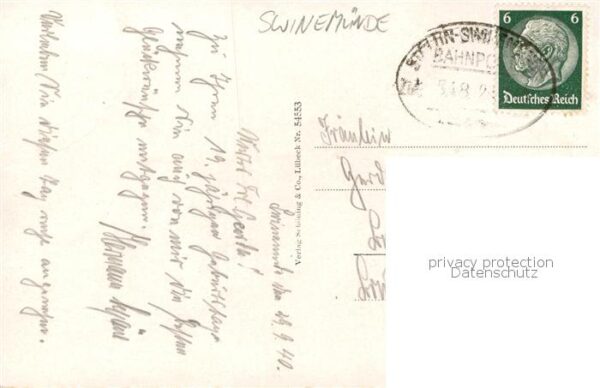 SWINEMÜNDE
6 6
Deutsches Reich
STETTIN-SWINEMÜNDE
BAHNPOST
Zug
Fräulein
Verlag Schöning & Co., Lübeck Nr. 54553
Swinemünde, den 19.9.40.
Gerda!
Zu Ihrem 19. jährigen Geburtstage
nehmen Sie auch von mir die besten
Glückwünsche entgegen.
Hermann
Verleben Sie diesen Tag recht angenehm.
privacy protection
Datenschutz